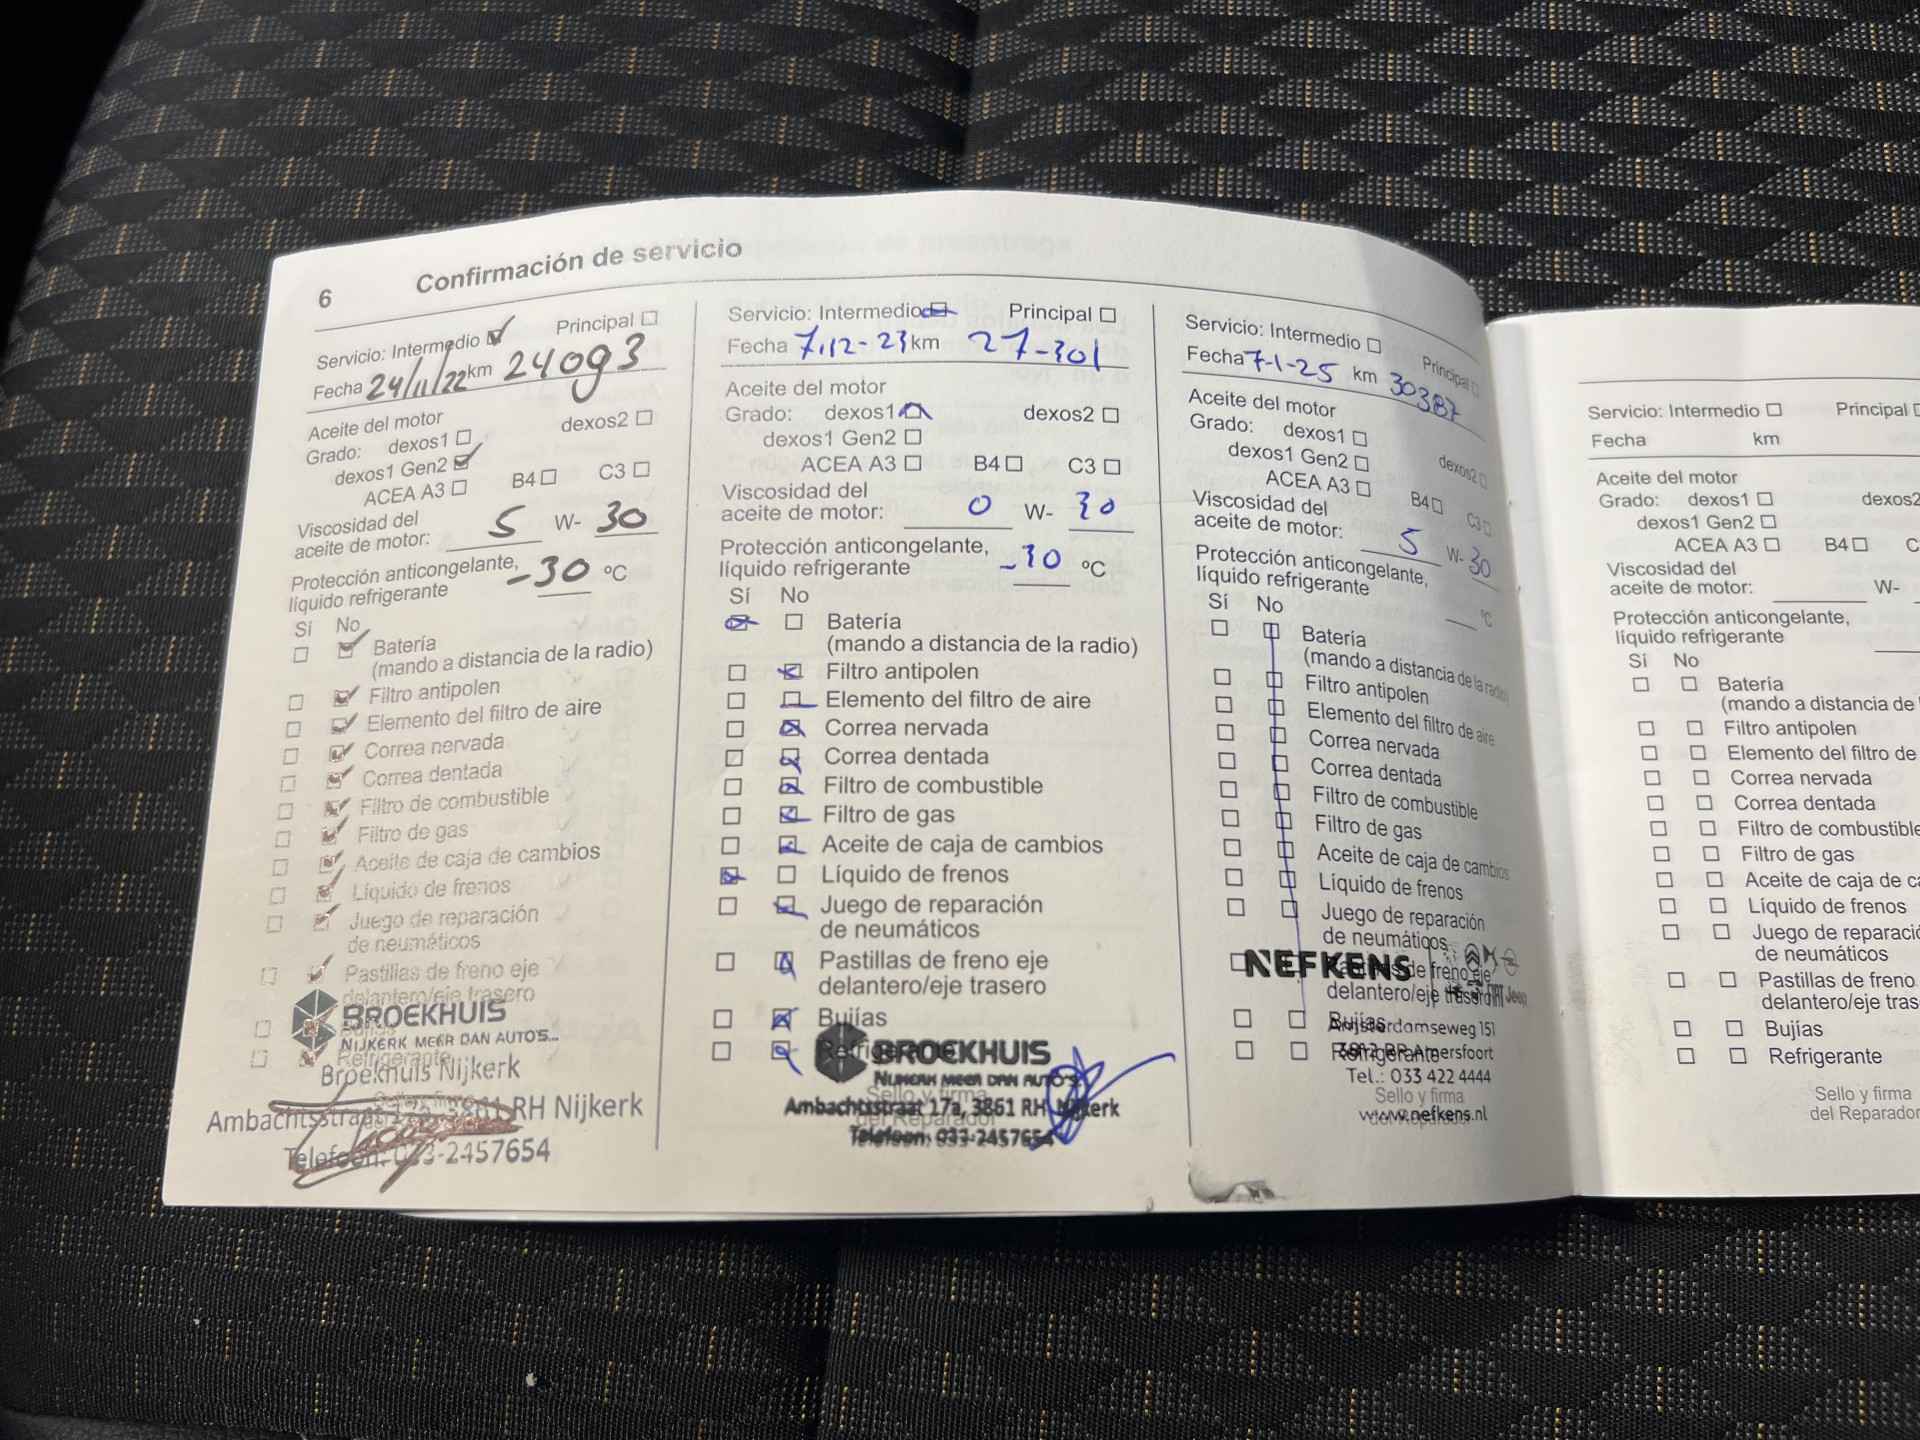 6 Confirmación de servicio
Servicio: Intermedio Principal
Fecha 24/11/22 km 24093
Aceite del motor
Grado: dexos1 dexos2
dexos1 Gen2
ACEA A3 B4 C3
Viscosidad del
aceite de motor: 5 W- 30
Protección anticongelante,
líquido refrigerante -30 ºC
Sí No
Batería
(mando a distancia de la radio)
Filtro antipolen
Elemento del filtro de aire
Correa nervada
Correa dentada
Filtro de combustible
Filtro de gas
Aceite de caja de cambios
Líquido de frenos
Juego de reparación
de neumáticos
Pastillas de freno eje
delantero/eje trasero
BROEKHUIS
NIJKERK MEER DAN AUTO'S...
Refrigerante
Broekhuis Nijkerk
Sello y firma
Ambachtsstraat 17a, 3861 RH Nijkerk
Telefoon: 033-2457654
Servicio: Intermedio Principal
Fecha 7-12-23 km 27-301
Aceite del motor
Grado: dexos1 dexos2
dexos1 Gen2
ACEA A3 B4 C3
Viscosidad del
aceite de motor: 0 W- 30
Protección anticongelante,
líquido refrigerante -30 ºC
Sí No
Batería
(mando a distancia de la radio)
Filtro antipolen
Elemento del filtro de aire
Correa nervada
Correa dentada
Filtro de combustible
Filtro de gas
Aceite de caja de cambios
Líquido de frenos
Juego de reparación
de neumáticos
Pastillas de freno eje
delantero/eje trasero
Bujías
Refrigerante
BROEKHUIS
NIJKERK MEER DAN AUTO'S
Sello y firma
Ambachtsstraat 17a, 3861 RH Nijkerk
del Reparador
Telefoon: 033-2457654
Servicio: Intermedio Principal
Fecha 7-1-25 km 30387
Aceite del motor
Grado: dexos1 dexos2
dexos1 Gen2
ACEA A3 B4 C3
Viscosidad del
aceite de motor: 5 W- 30
Protección anticongelante,
líquido refrigerante ºC
Sí No
Batería
(mando a distancia de la radio)
Filtro antipolen
Elemento del filtro de aire
Correa nervada
Correa dentada
Filtro de combustible
Filtro de gas
Aceite de caja de cambios
Líquido de frenos
Juego de reparación
de neumáticos
NEFKENS
de freno eje
delantero/eje trasero
FIAT Jeep
Bujías
Amsterdamseweg 151
Refrigerante
3812 RR Amersfoort
Tel.: 033 422 4444
Sello y firma
www.nefkens.nl
del Reparador
Servicio: Intermedio Principal
Fecha km
Aceite del motor
Grado: dexos1 dexos2
dexos1 Gen2
ACEA A3 B4 C
Viscosidad del
aceite de motor: W-
Protección anticongelante,
líquido refrigerante
Sí No
Batería
(mando a distancia de
Filtro antipolen
Elemento del filtro de
Correa nervada
Correa dentada
Filtro de combustible
Filtro de gas
Aceite de caja de ca
Líquido de frenos
Juego de reparació
de neumáticos
Pastillas de freno
delantero/eje tras
Bujías
Refrigerante
Sello y firma
del Reparador